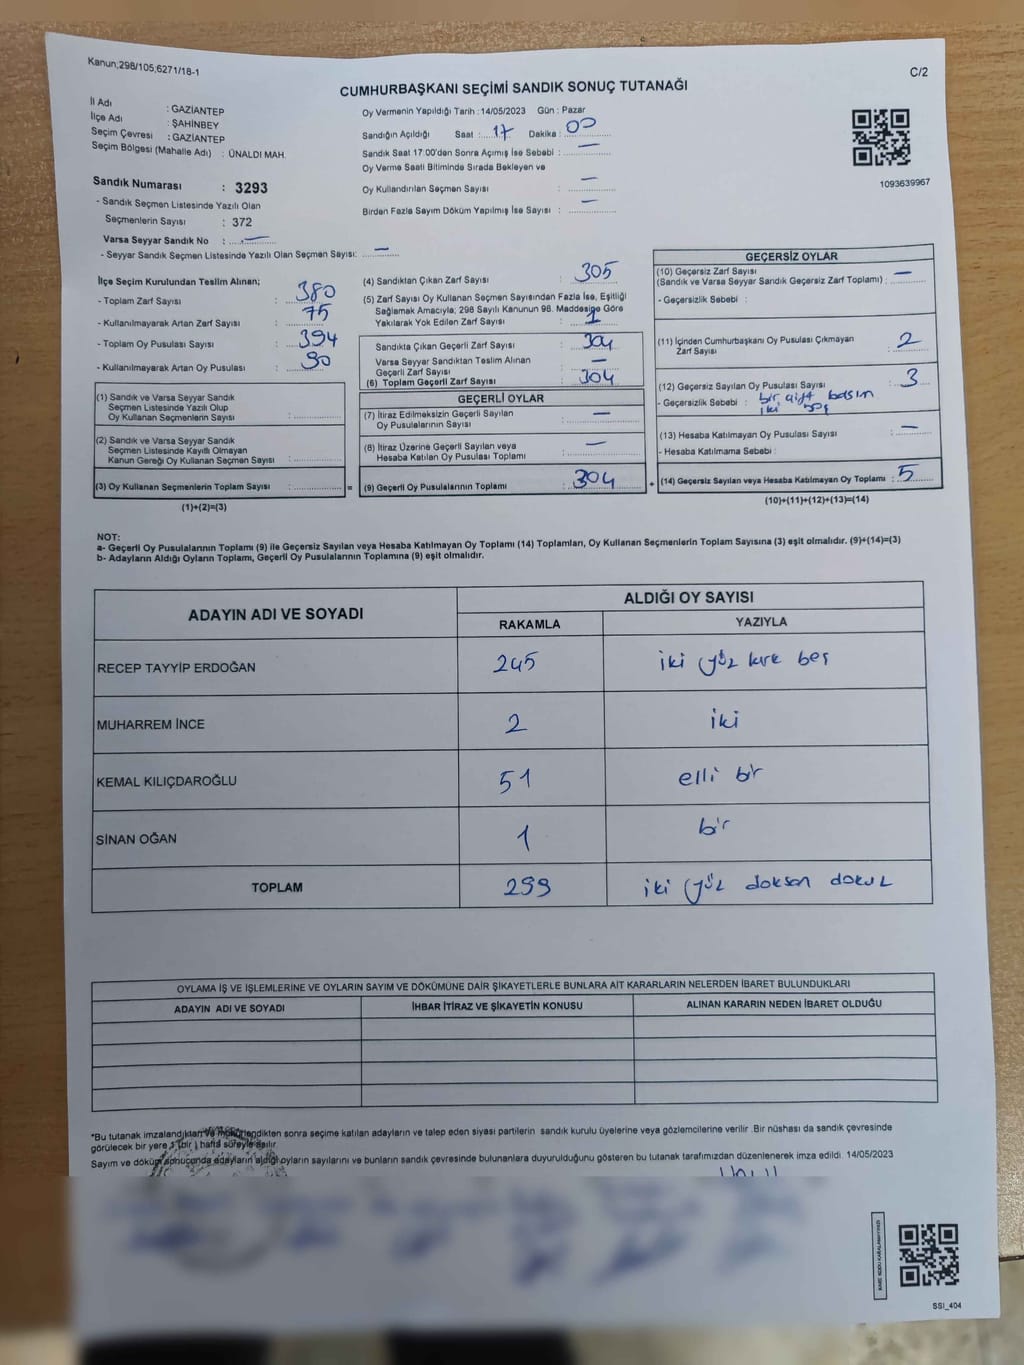 Kanun;298/105,6271/18-1
C/2
CUMHURBAŞKANI SEÇİMİ SANDIK SONUÇ TUTANAĞI
İl Adı : GAZİANTEP
İlçe Adı : ŞAHİNBEY
Seçim Çevresi : GAZİANTEP
Seçim Bölgesi (Mahalle Adı) : ÜNALDI MAH.
Oy Vermenin Yapıldığı Tarih : 14/05/2023 Gün : Pazar
Sandığın Açıldığı Saat :.. 17 Dakika : 00
Sandık Saat 17:00'den Sonra Açımış İse Sebebi : —
Oy Verme Saati Bitiminde Sırada Bekleyen ve
Oy Kullandırılan Seçmen Sayısı : —
Birden Fazla Sayım Döküm Yapılmış İse Sayısı : —
1093639967
Sandık Numarası : 3293
- Sandık Seçmen Listesinde Yazılı Olan
Seçmenlerin Sayısı : 372
Varsa Seyyar Sandık No : —
- Seyyar Sandık Seçmen Listesinde Yazılı Olan Seçmen Sayısı: —
İlçe Seçim Kurulundan Teslim Alınan;
- Toplam Zarf Sayısı : 380
- Kullanılmayarak Artan Zarf Sayısı : 75
- Toplam Oy Pusulası Sayısı : 394
- Kullanılmayarak Artan Oy Pusulası : 90
(1) Sandık ve Varsa Seyyar Sandık
Seçmen Listesinde Yazılı Olup
Oy Kullanan Seçmenlerin Sayısı :
(2) Sandık ve Varsa Seyyar Sandık
Seçmen Listesinde Kayıtlı Olmayan
Kanun Gereği Oy Kullanan Seçmen Sayısı :
(3) Oy Kullanan Seçmenlerin Toplam Sayısı : =
(1)+(2)=(3)
(4) Sandıktan Çıkan Zarf Sayısı : 305
(5) Zarf Sayısı Oy Kullanan Seçmen Sayısından Fazla İse, Eşitliği
Sağlamak Amacıyla; 298 Sayılı Kanunun 98. Maddesine Göre
Yakılarak Yok Edilen Zarf Sayısı : 1
Sandıkta Çıkan Geçerli Zarf Sayısı : 304
Varsa Seyyar Sandıktan Teslim Alınan
Geçerli Zarf Sayısı : —
(6) Toplam Geçerli Zarf Sayısı : 304
GEÇERLİ OYLAR
(7) İtiraz Edilmeksizin Geçerli Sayılan
Oy Pusulalarının Sayısı : —
(8) İtiraz Üzerine Geçerli Sayılan veya
Hesaba Katılan Oy Pusulası Toplamı : —
(9) Geçerli Oy Pusulalarının Toplamı : 304 +
GEÇERSİZ OYLAR
(10) Geçersiz Zarf Sayısı
(Sandık ve Varsa Seyyar Sandık Geçersiz Zarf Toplamı) : —
- Geçersizlik Sebebi :
(11) İçinden Cumhurbaşkanı Oy Pusulası Çıkmayan
Zarf Sayısı : 2
(12) Geçersiz Sayılan Oy Pusulası Sayısı : 3
- Geçersizlik Sebebi : bir çift basım
iki boş
(13) Hesaba Katılmayan Oy Pusulası Sayısı : —
- Hesaba Katılmama Sebebi :
(14) Geçersiz Sayılan veya Hesaba Katılmayan Oy Toplamı : 5
(10)+(11)+(12)+(13)=(14)
NOT:
a- Geçerli Oy Pusulalarının Toplamı (9) ile Geçersiz Sayılan veya Hesaba Katılmayan Oy Toplamı (14) Toplamları, Oy Kullanan Seçmenlerin Toplam Sayısına (3) eşit olmalıdır. (9)+(14)=(3)
b- Adayların Aldığı Oyların Toplamı, Geçerli Oy Pusulalarının Toplamına (9) eşit olmalıdır.
ADAYIN ADI VE SOYADI
ALDIĞI OY SAYISI
RAKAMLA YAZIYLA
RECEP TAYYİP ERDOĞAN 245 iki yüz kırk beş
MUHARREM İNCE 2 iki
KEMAL KILIÇDAROĞLU 51 elli bir
SİNAN OĞAN 1 bir
TOPLAM 299 iki yüz doksan dokuz
OYLAMA İŞ VE İŞLEMLERİNE VE OYLARIN SAYIM VE DÖKÜMÜNE DAİR ŞİKAYETLERLE BUNLARA AİT KARARLARIN NELERDEN İBARET BULUNDUKLARI
ADAYIN ADI VE SOYADI İHBAR İTİRAZ VE ŞİKAYETİN KONUSU ALINAN KARARIN NEDEN İBARET OLDUĞU
*Bu tutanak imzalandıktan ve mühürlendikten sonra seçime katılan adayların ve talep eden siyasi partilerin sandık kurulu üyelerine veya gözlemcilerine verilir .Bir nüshası da sandık çevresinde
görülecek bir yere 1 (bir ) hafta süreyle asılır.
Sayım ve döküm sonucunda adayların aldığı oyların sayılarını ve bunların sandık çevresinde bulunanlara duyurulduğunu gösteren bu tutanak tarafımızdan düzenlenerek imza edildi. 14/05/2023
SSI_404